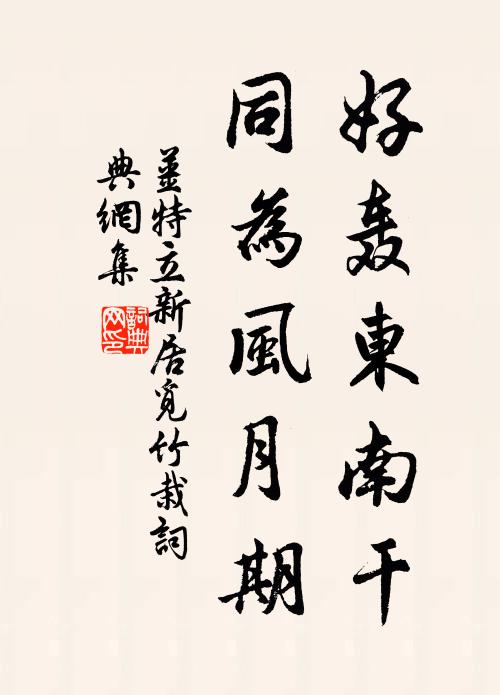 好轰東南干
同為風月期
姜特立新居覓竹栽詞
典網集
詞典
网印